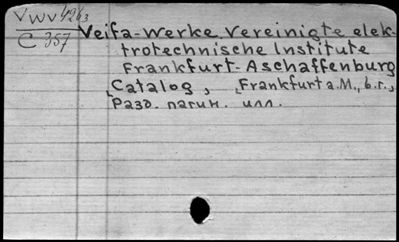 VWV 4263
C 357
Veifa-Werke Vereinigte elek-
trotechnische Institute
Frankfurt-Aschaffenburg
Catalog, Frankfurt a.M., b.r.,
Разд. пагин. илл.